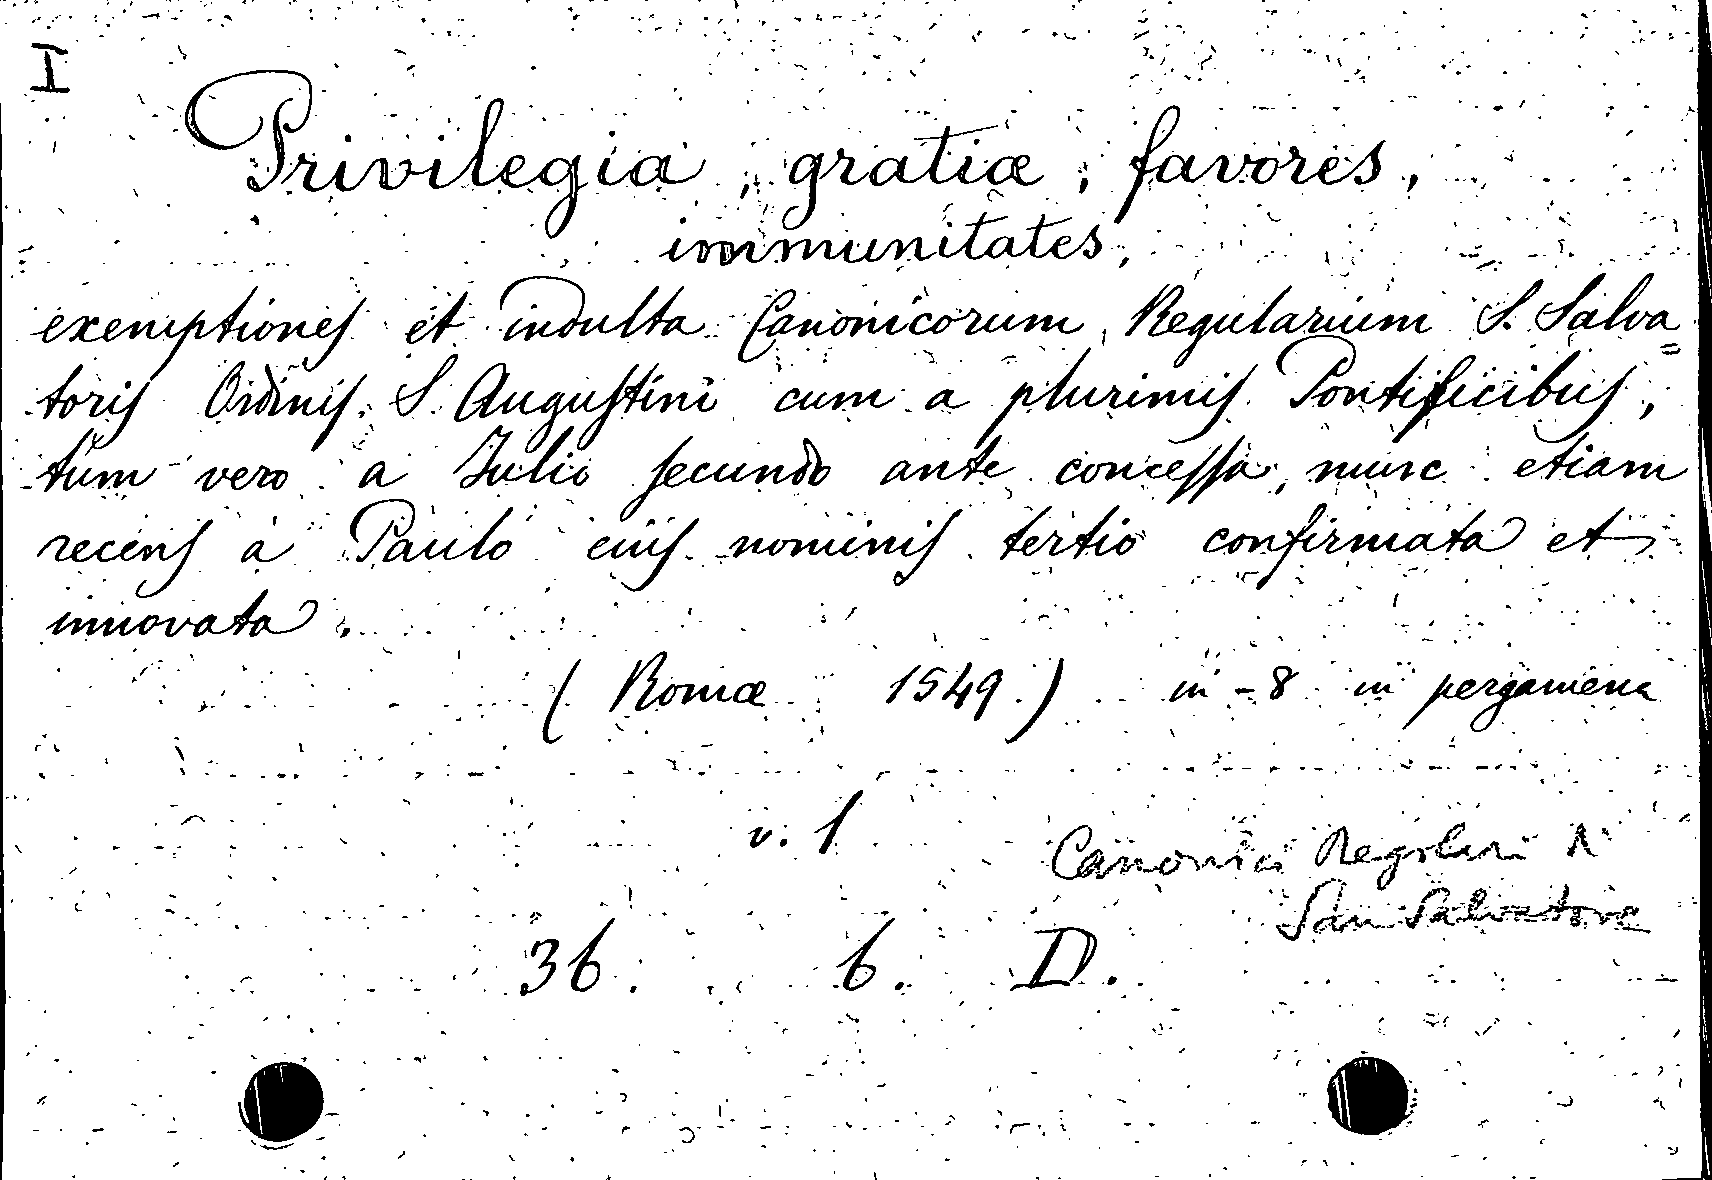 I
Privilegia, gratiæ, favores,
immunitates,
exemptiones et indulta Canonicorum Regularium S. Salva=
toris Ordinis S. Augustini cum a plurimis Pontificibus,
tum vero a Julio secundo ante concessa, nunc etiam
recens a Paulo eius nominis tertio confirmata et
innovata.
(Romæ 1549.) in-8 in pergamena
v. 1
Canonici Regolari
San Salvatore
36. 6. D.